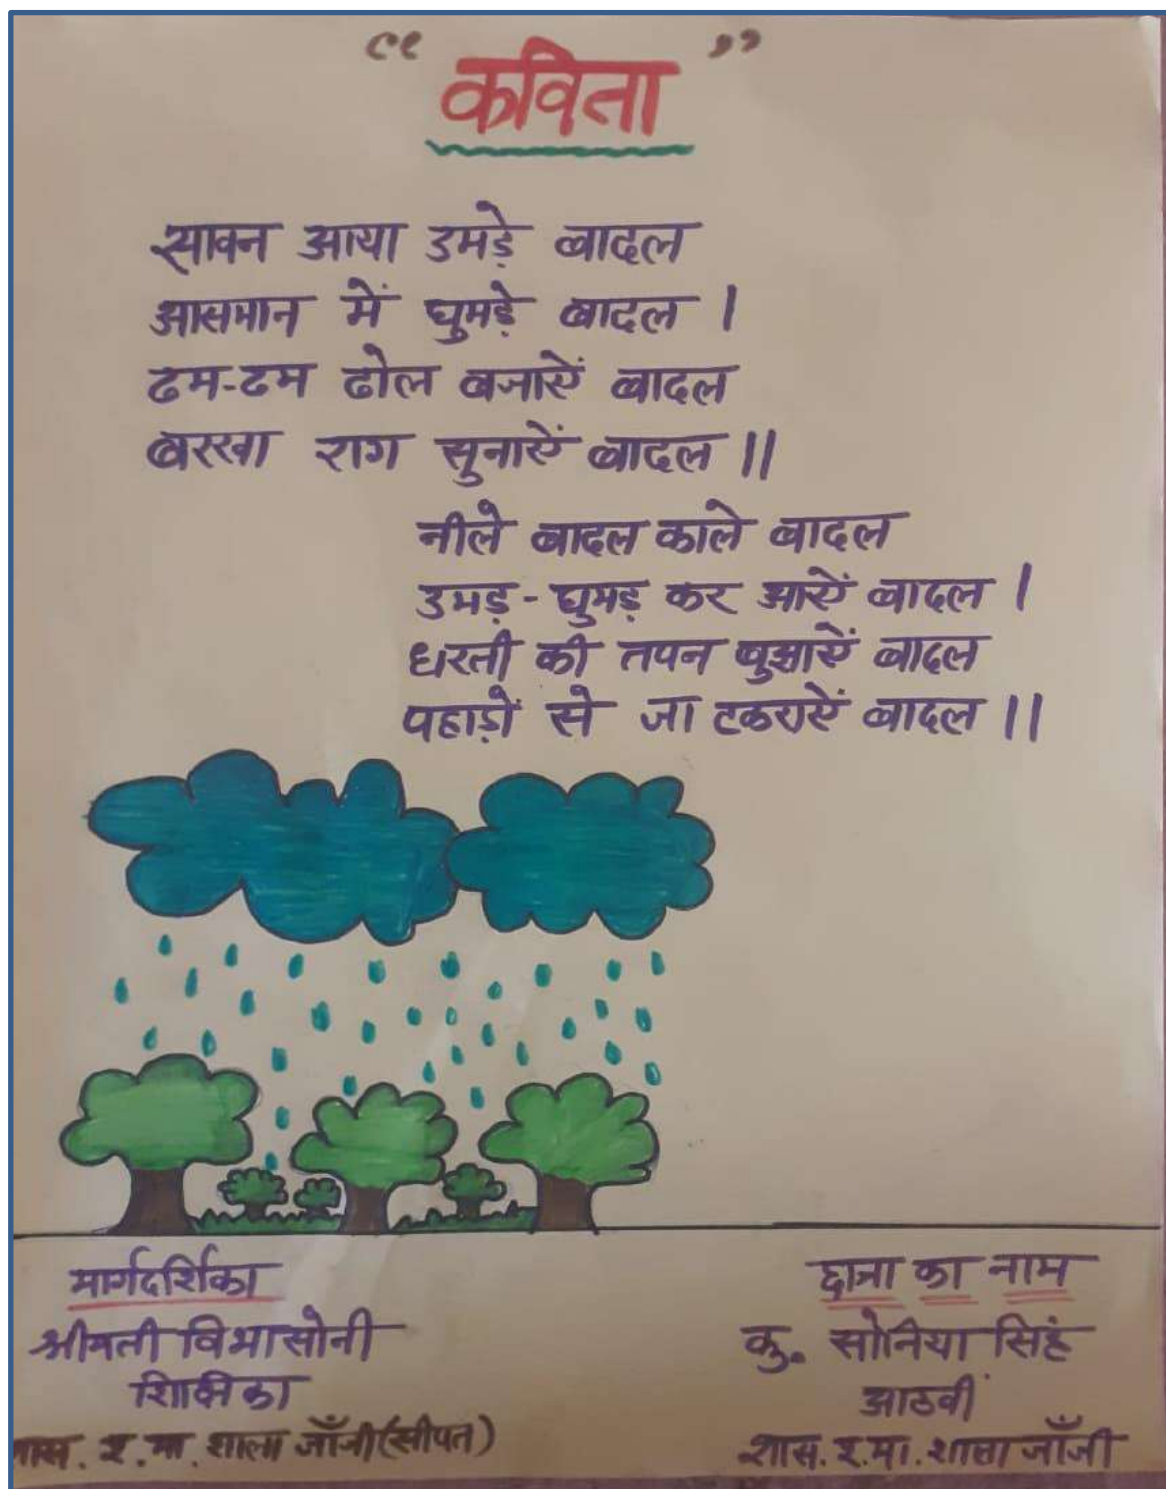 “ कविता ”
सावन आया उमड़े बादल
आसमान में घुमड़े बादल ।
ढम-ढम ढोल बजाऐं बादल
बरखा राग सुनाऐं बादल ।।
नीले बादल काले बादल
उमड़ - घुमड़ कर आऐं बादल ।
धरती की तपन बुझाऐं बादल
पहाड़ों से जा टकराऐं बादल ।।
मार्गदर्शिका
श्रीमती विभा सोनी
शिक्षिका
शास. पू. मा. शाला जाँजी (सीपत)
छात्रा का नाम
कु. सोनिया सिंह
आठवीं
शास. पू. मा. शाला जाँजी